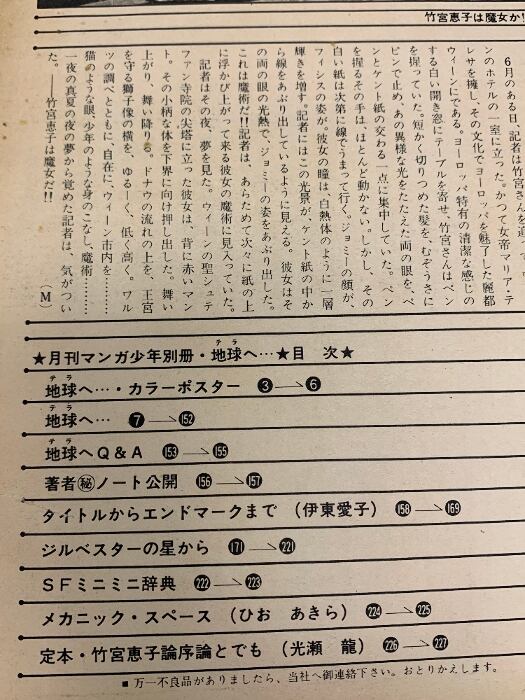 竹宮恵子は魔女か!
6月のある日、記者は竹宮さんを追
ンのホテルの一室に立った。かつて女帝マリア・テ
レサを擁し、その文化でヨーロッパを魅了した麗都
ウィーンにである。ヨーロッパ特有の清潔な感じの
する白い開き窓にテーブルを寄せ、竹宮さんはペン
を握っていた。短か、切りつめた髪を、むぞうさに
ピンで止め、あの異様な光をたたえた両の眼を、ペ
ンとケント紙の交わる一点に集中していた。ペン
を握るその手は、ほとんど動かない。しかし、その
白い紙は次第に線でうまって行く。ジョミーの顔が、
フィシスの姿が。彼女の瞳は、白熱体のように一層
輝きを増す。記者にはこの光景が、ケント紙の中か
ら線をあぶり出しているように見える。彼女はそ
の両の眼の光熱で、ジョミーの姿をあぶり出した。
これは魔術だ!!記者は、あらためて次々に紙の上
に浮かび上がって来る彼女の魔術に見入っていた。
記者はその夜、夢を見た。ウィーンの聖シュテ
ファン寺院の尖塔に立った彼女は、背に赤いマン
ト。その小柄な体を下界に向け押し出した。舞い
上がり、舞い降りる。ドナウの流れの上を、王宮
を守る獅子像の横を、ゆるーく、低く高く。ワル
ツの調べとともに、自在に、ウィーン市内を……
猫のような眼、少年のような身のこなし、魔術……
一夜の真夏の夜の夢から覚めた記者は、気がつい
た。——竹宮恵子は魔女だ!!　（M）
★月刊マンガ少年別冊・地球へ…★目　次★
地球へ…・カラーポスター　❸→❻
地球へ…　❼→152
地球へQ&A　153→155
著者㊙ノート公開　156→157
タイトルからエンドマークまで（伊東愛子）　158→169
ジルベスターの星から　171→221
SFミニミニ辞典　222→223
メカニック・スペース（ひお　あきら）　224→225
定本・竹宮恵子論序論とでも（光瀬　龍）　226→227
■万一不良品がありましたら、当社へ御連絡下さい。おとりかえします。